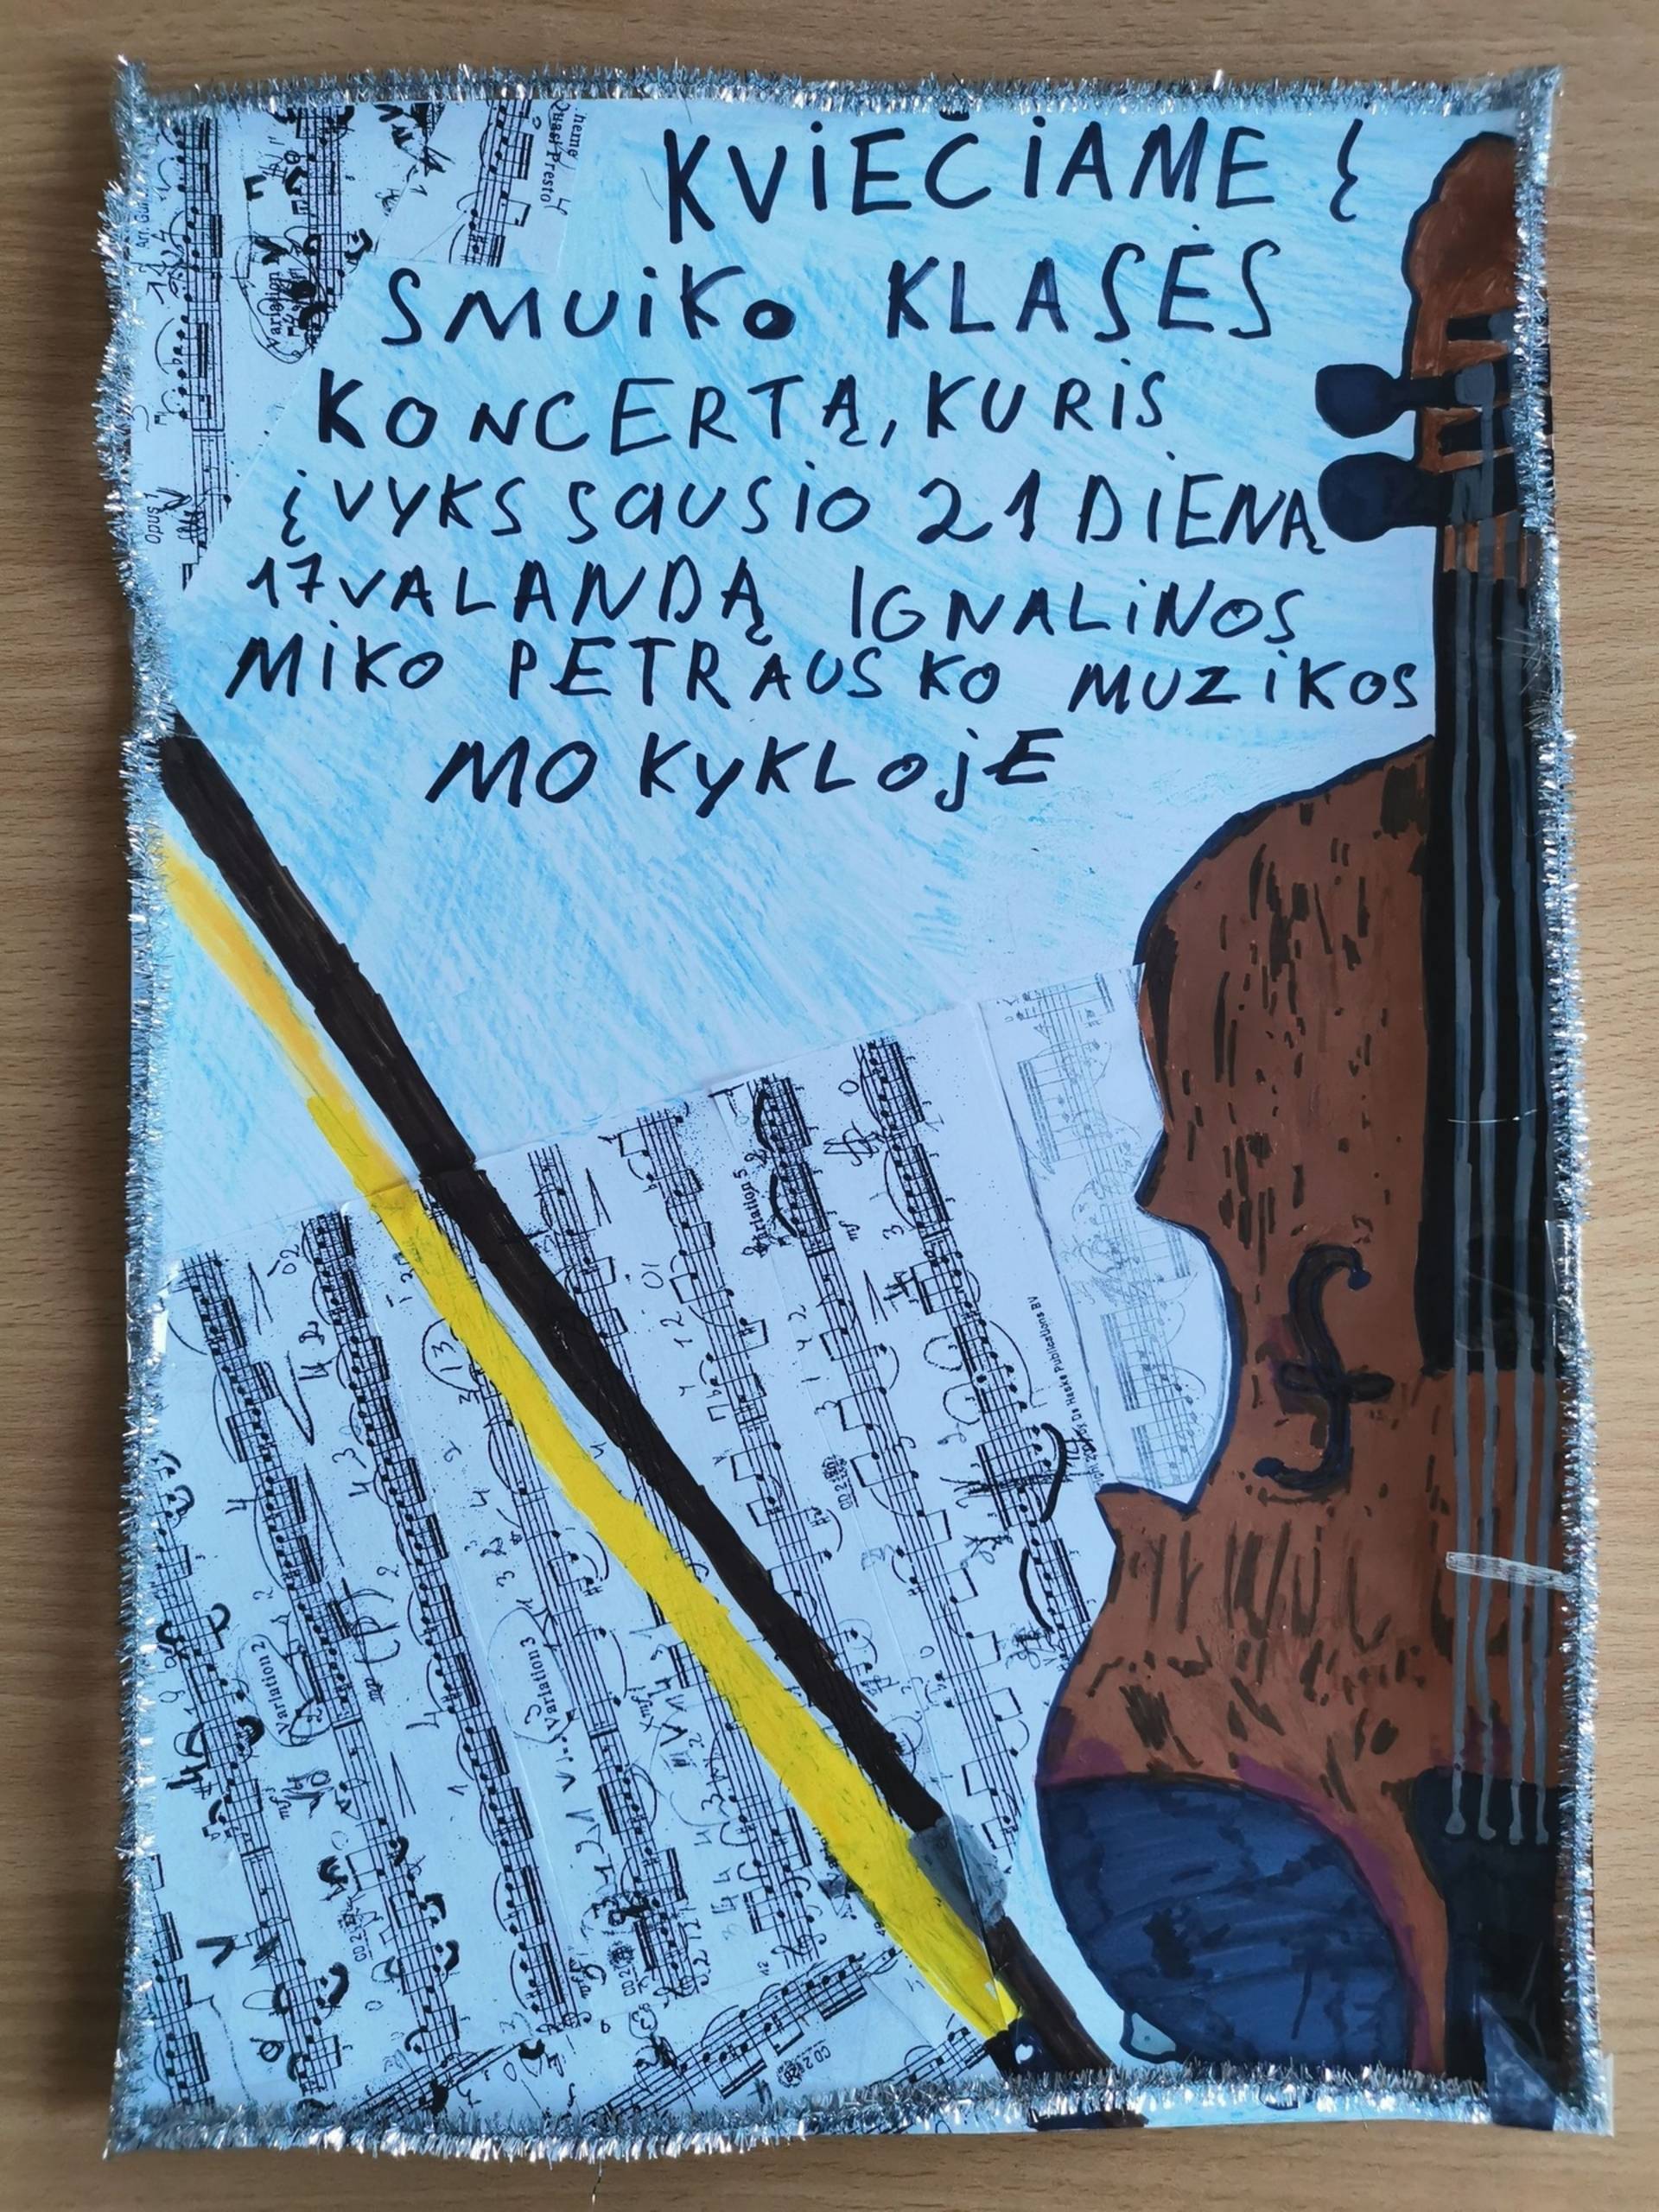 KVIEČIAME Į
SMUIKO KLASĖS
KONCERTĄ, KURIS
ĮVYKS SAUSIO 21 DIENĄ
17 VALANDĄ IGNALINOS
MIKO PETRAUSKO MUZIKOS
MOKYKLOJE
Quasi Presto
Variation 2
Variation 3
Variation 5
De Haske Publications BV